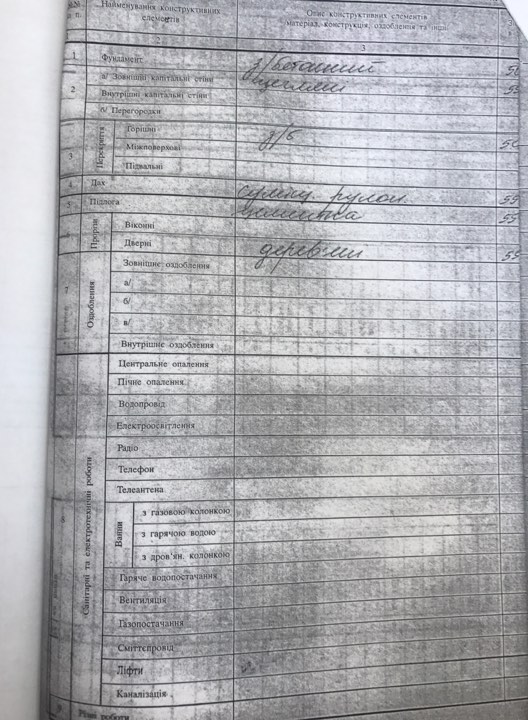 №№ п. п. Найменування конструктивних елементів Опис конструктивних елементів матеріал, конструкція, оздоблення та інше
2 3
1 Фундамент з/бетонний 50
2 а/ Зовнішні капітальні стіни цегляні 55
Внутрішні капітальні стіни
б/ Перегородки
3 Перекриття Горішні
Міжповерхові з/б 50
Підвальні
4 Дах суміщ. рулон. 55
5 Підлога 55
Прорізи Віконні
Дверні дерев'яні 55
7 Оздоблення Зовнішнє оздоблення
а/
б/
в/
Внутрішнє оздоблення
8 Санітарні та електротехнічні роботи Центральне опалення
Пічне опалення
Водопровід
Електроосвітлення
Радіо
Телефон
Телеантена
Ванни з газовою колонкою
з гарячою водою
з дров'ян. колонкою
Гаряче водопостачання
Вентиляція
Газопостачання
Сміттєпровід
Ліфти
Каналізація
9 Різні роботи